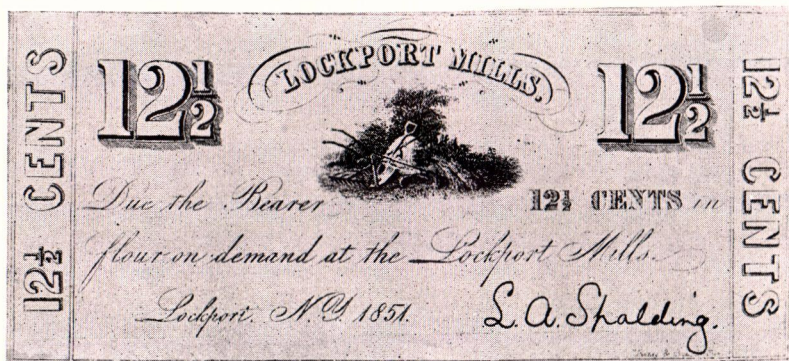 12½ CENTS
12½
LOCKPORT MILLS.
12½
12½ CENTS
Due the Bearer 12½ CENTS in
flour on demand at the Lockport Mills.
Lockport. N.Y. 1851.
L. A. Spalding.